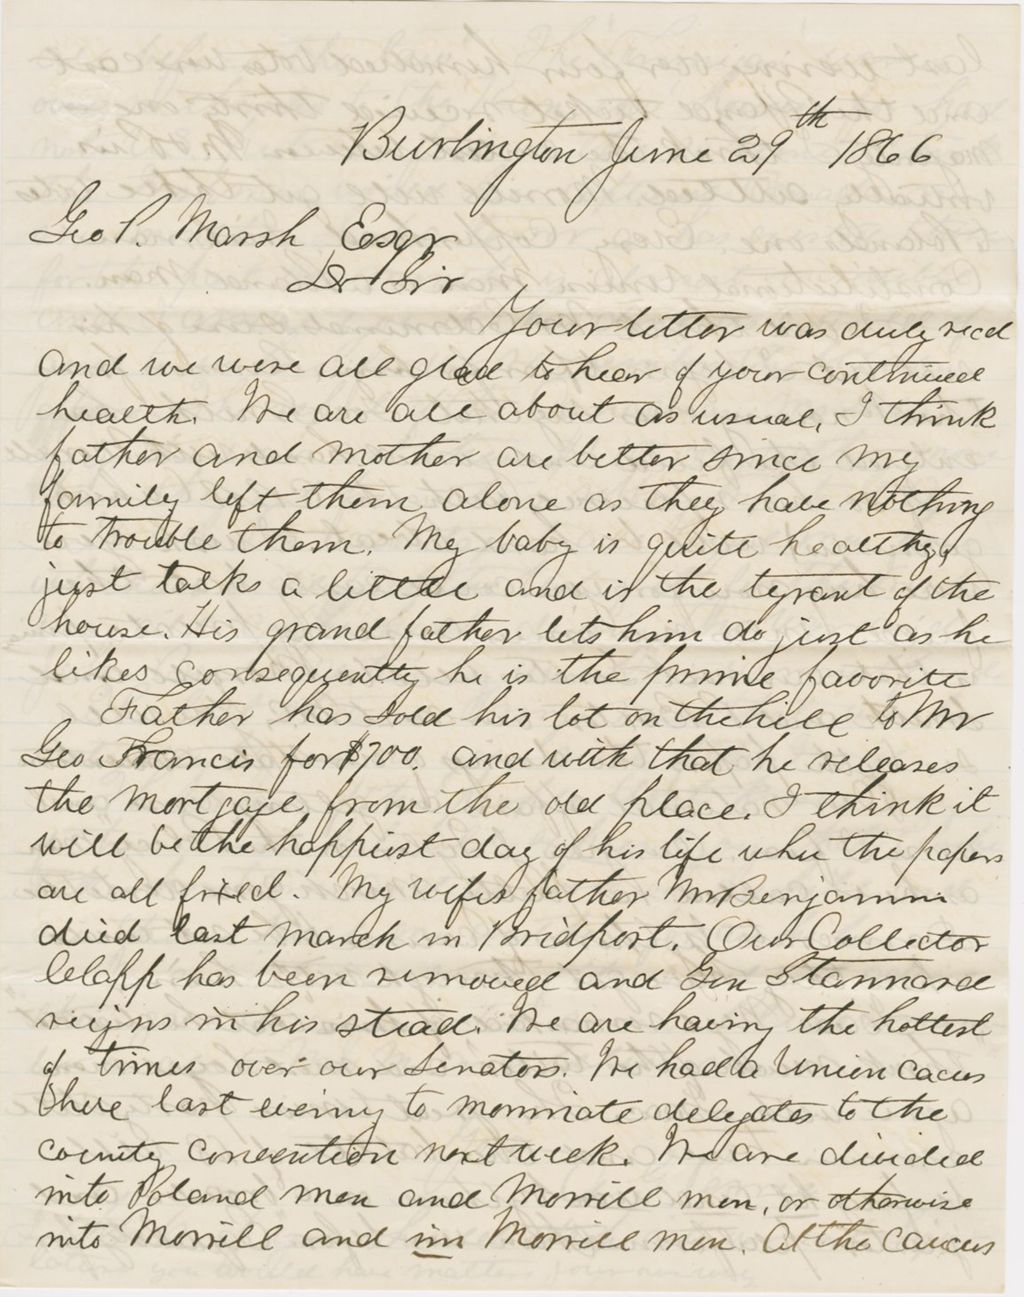 Burlington June 29th 1866
Geo P. Marsh Esqr
Dr Sir
Your letter was duly recd
and we were all glad to hear of your continued
health. We are all about as usual. I think
father and mother are better since my
family left them alone as they have nothing
to trouble them. My baby is quite healthy,
just talks a little and is the tyrant of the
house. His grand father lets him do just as he
likes consequently he is the prime favorite
Father has sold his lot on the hill to Mr
Geo Francis for $700. and with that he releases
the mortgage from the old place. I think it
will be the happiest day of his life when the papers
are all fixed. My wifes father Mr Benjamin
died last March in Bridport. Our Collector
Clapp has been removed and Gen Stannard
reigns in his stead. We are having the hottest
of times over our Senators. We had a Union cacus
here last evening to nominate delegates to the
county convention next week. We are divided
into Poland men and Morrill men, or otherwise
into Morrill and im Morrill men. At the caucus